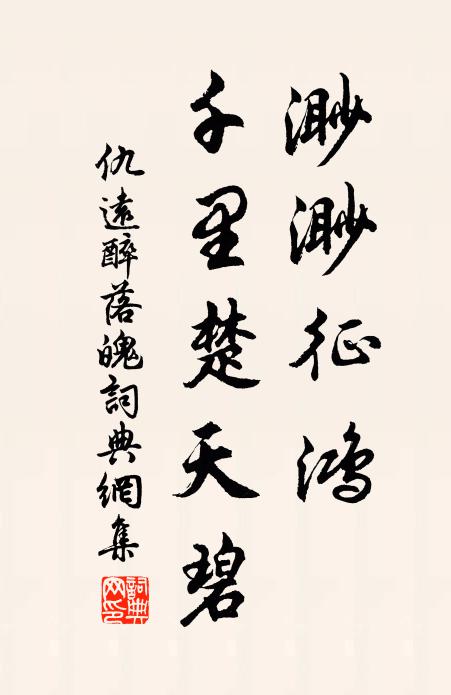 渺渺征鸿
千里楚天碧
仇遠醉落魄詞典網集
詞典網印